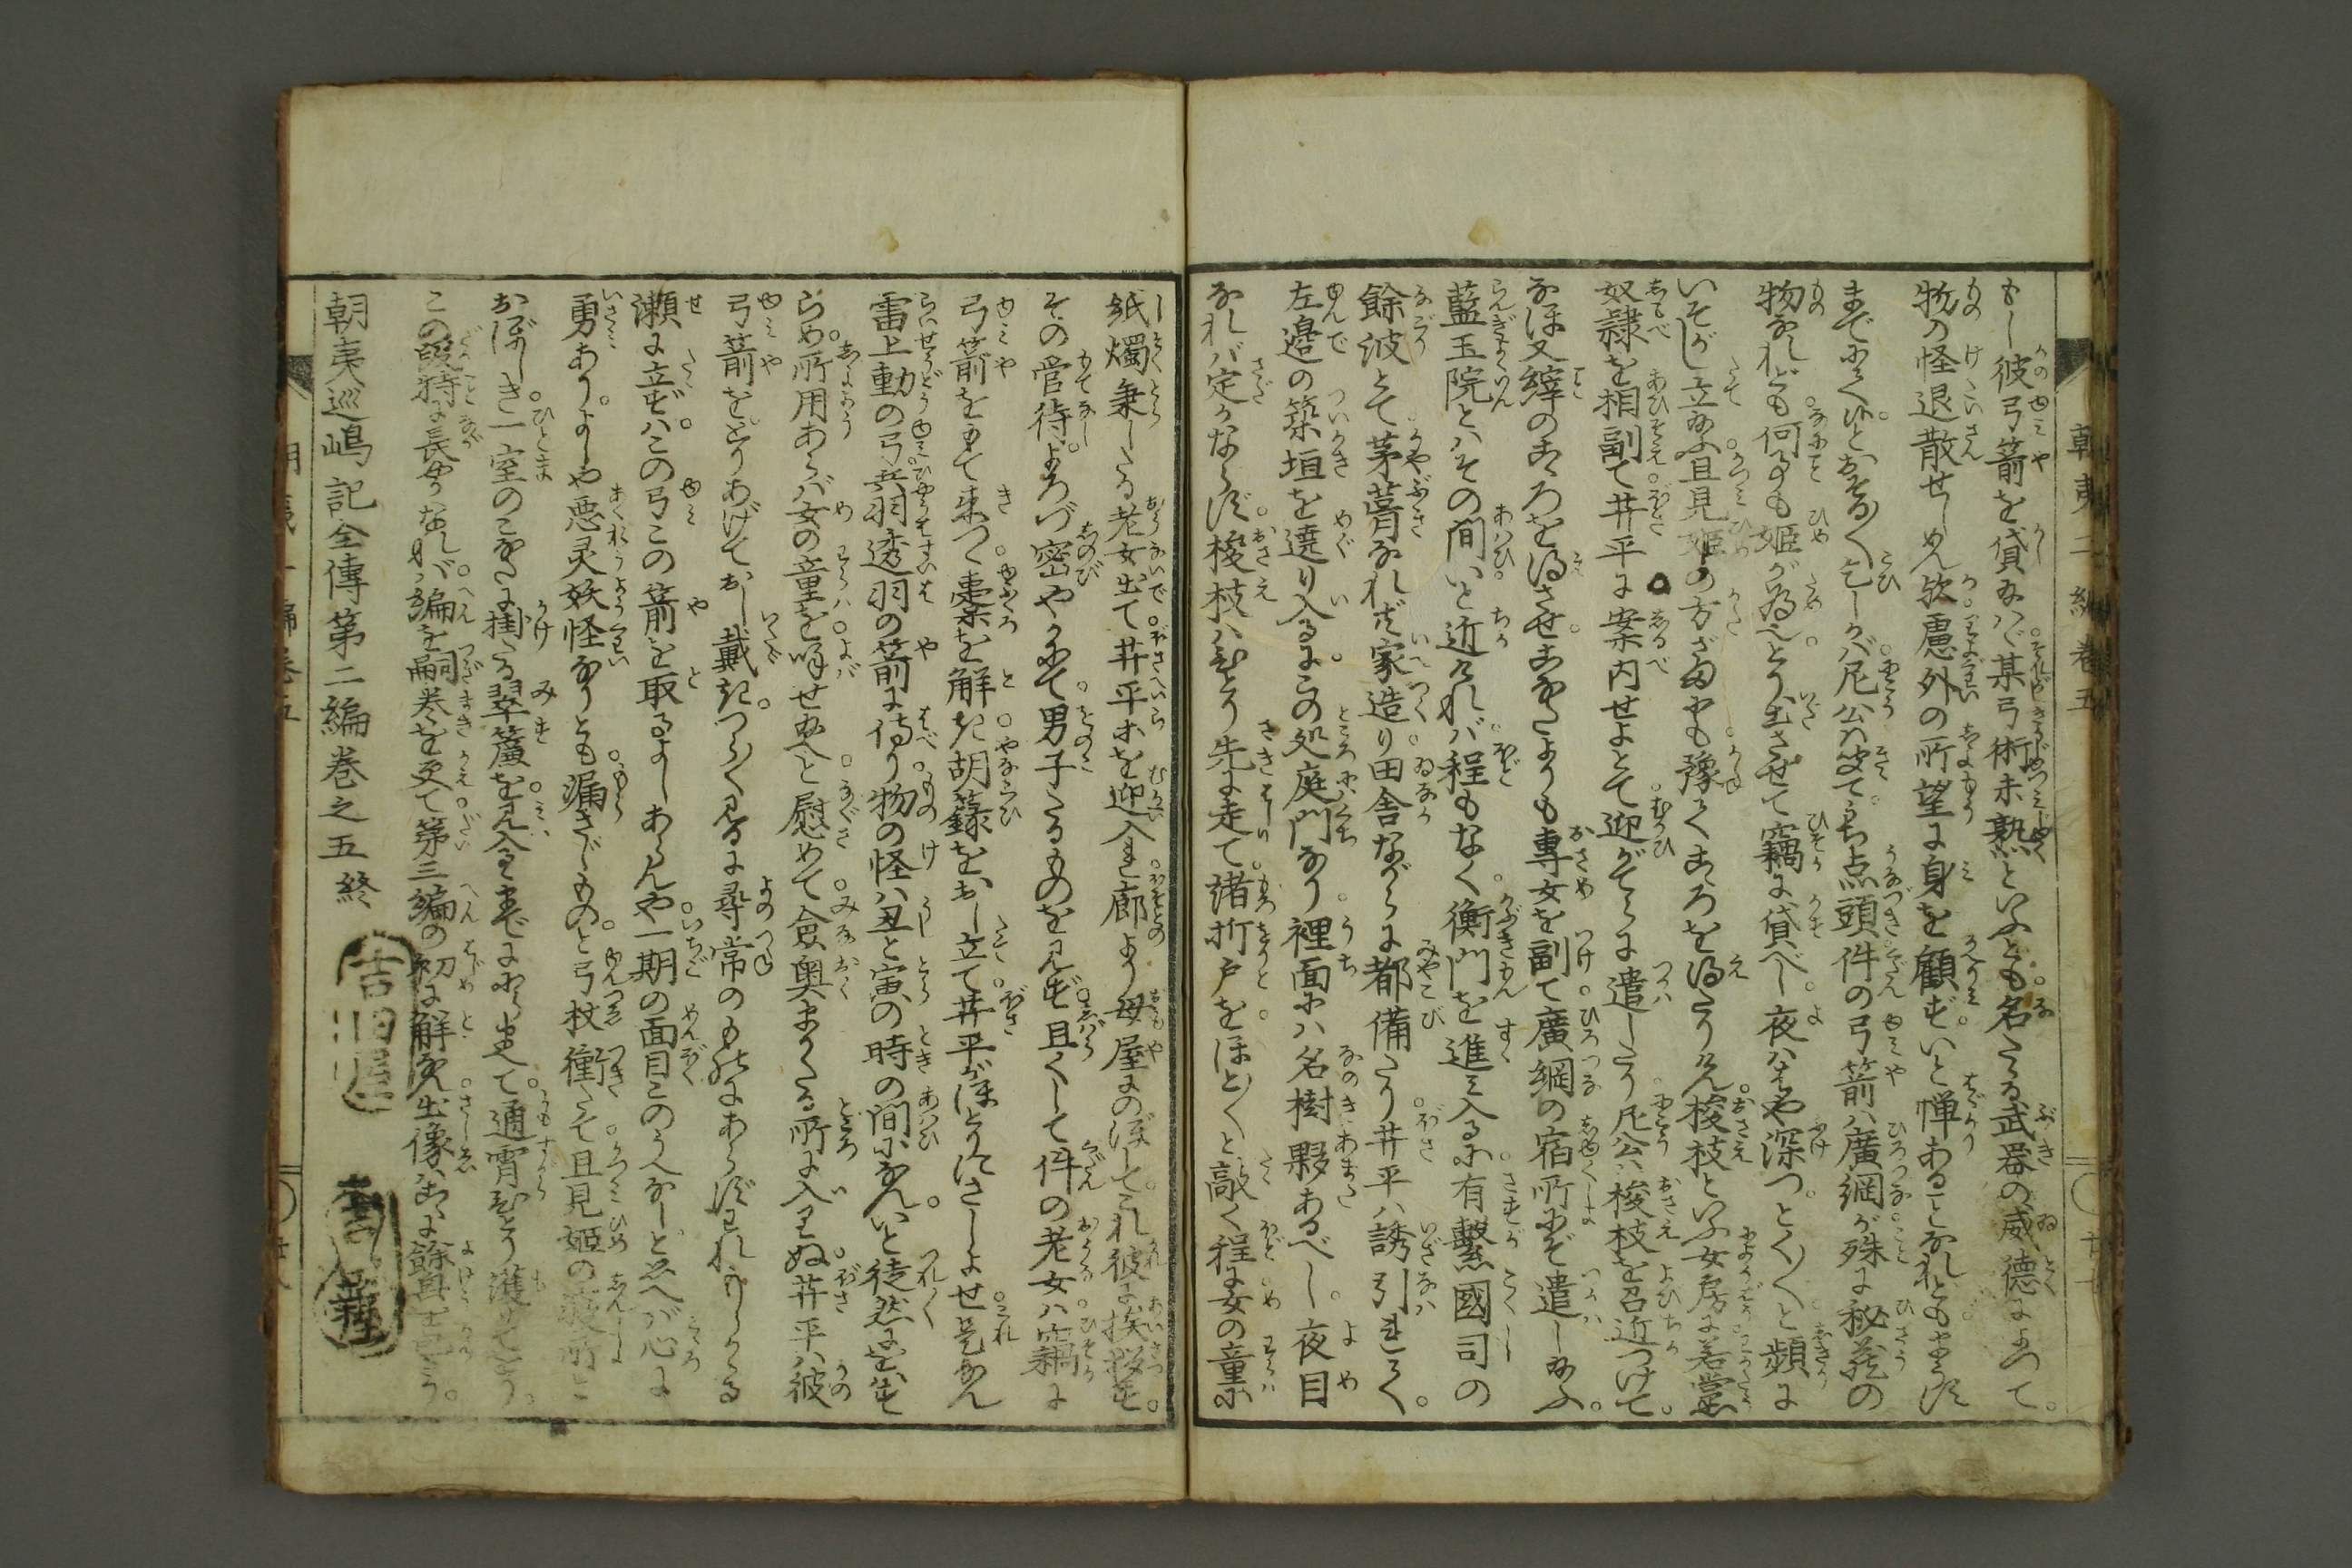 朝夷二編巻五
もし彼弓箭を貸給はゞ某弓術未熟といふとも名たる武器の威徳によつて。
物の怪退散せしめん歟慮外の所望に身を顧ずいと憚あることなれどもまうす
までに候。とおそる〳〵乞しかば尼公は聞てうち点頭件の弓箭は廣綱が殊に秘蔵の
物なれども何事も姫が為也。とり出させて竊に貸べし。夜ははや深つ。とく〳〵と頻に
いそがし立給ふ且見姫の方ざまも豫てこゝろを得たりけん梭枝といふ女房に若黨
奴隷を相副て井平に案内せよとて迎がてらに遣したり尼公は梭枝を召近つけて。
なほ又縡のこゝろを得させ。こなたよりも專女を副て廣綱の宿所にぞ遣し給ふ。
藍玉院とはその間いと近ければ程もなく衡門を進み入るに有繋國司の
餘波とて茅葺なれど家造り田舎ながらに都備たり井平は誘引れて。
左邉の築垣を遶り入るに。この処庭門なり裡面には名樹夥あるべし。夜目
なれば定かならず。梭枝はひとり先に走て諸折戸をほと〳〵と敲く程に女の童に
紙燭秉したる老女出て。井平等を迎入れ廊より母屋にのぼしてこれ彼に挨拶す。
その管待。よろづ密やかにて。男子たるものを見ず。且くして件の老女は竊に
弓箭をもて来つ。嚢を解き胡籙をおし立て。井平がほとりにさしよせ是なん
雷上動の弓。兵羽透羽の箭に侍り物の怪は丑と寅の時の間になん。いと徒然にをはす
らめ。所用あらば女の童を呼せ給へと慰めて僉奥まりたる所に入りぬ井平は彼
弓箭を。とりあげておし戴き。つら〳〵見るに尋常のものにあらず。われかゝる
瀬に立ずはこの弓この箭を取るよしあらんや一期の面目このうへなしと思へば心に
勇あり。よしや悪灵妖怪なりとも。漏さじものと弓杖衝たて且見姫の寝所と
おぼしき。一室のこなたに掛たる翠簾を見入るまでにをり走て。通宵ひとり護てをり。
この段特に長やかなれば。編を嗣巻を更て第三編の初に解なん出像はこゝに餘興を
朝夷巡嶋記全傳第二編巻之五終